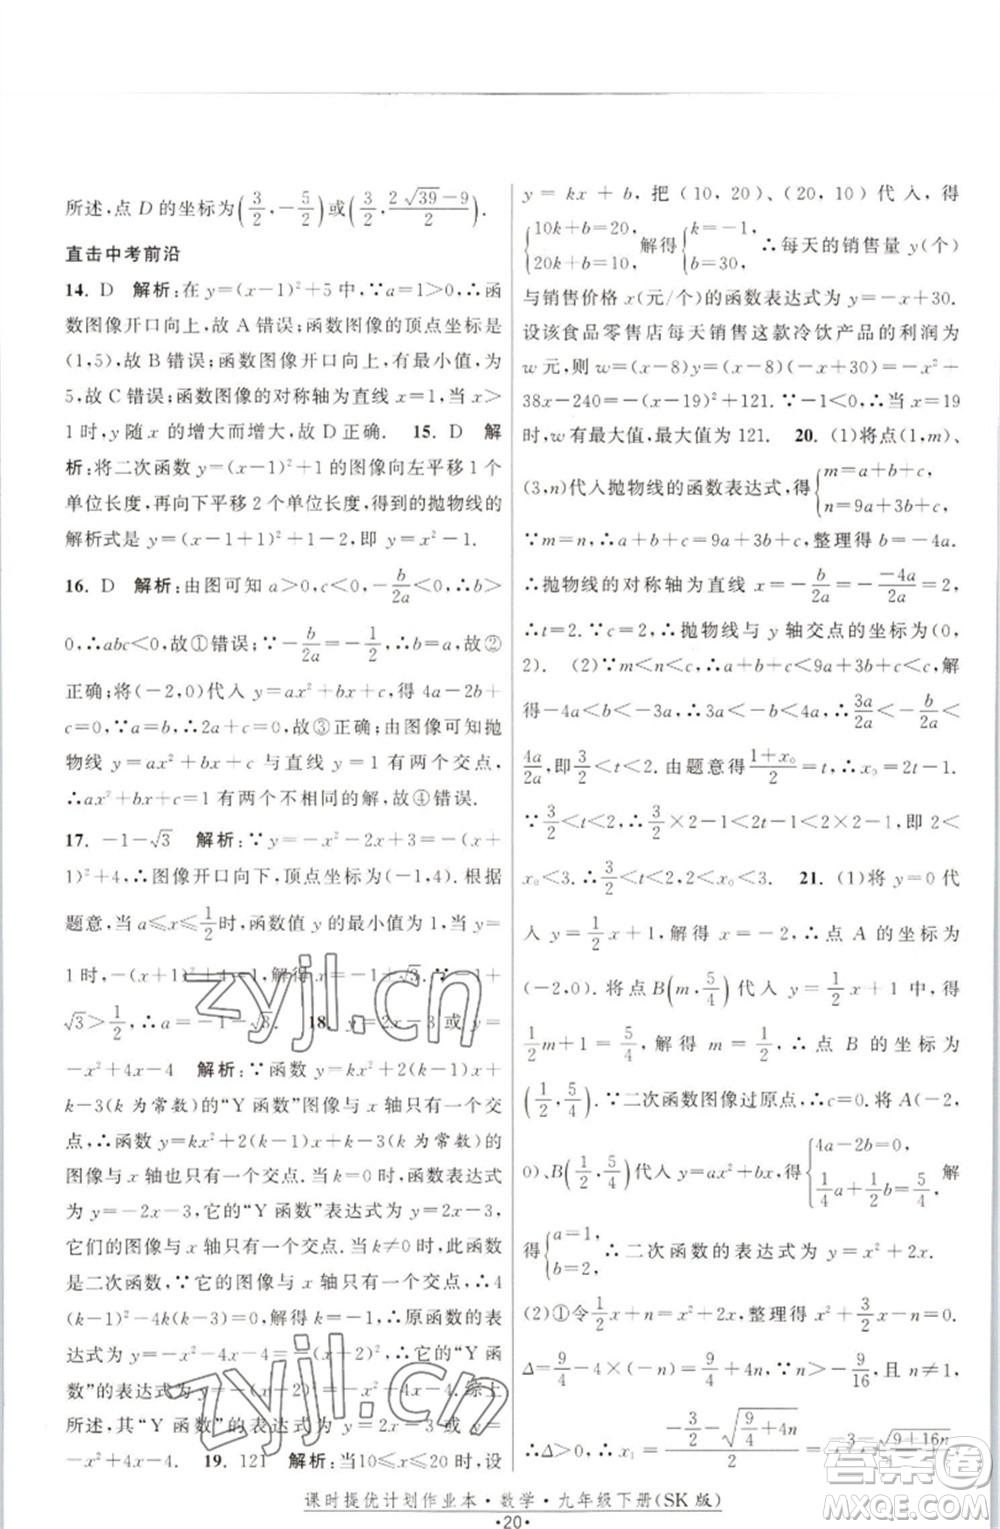 所述,点 D 的坐标为(3/2,-5/2)或(3/2,(2√39-9)/2).
直击中考前沿
14. D 解析:在 y=(x-1)²+5 中,∵a=1>0,∴函
数图像开口向上,故 A 错误;函数图像的顶点坐标是
(1,5),故 B 错误;函数图像开口向上,有最小值,为
5,故 C 错误;函数图像的对称轴为直线 x=1,当 x>
1 时,y 随 x 的增大而增大,故 D 正确. 15. D 解
析:将二次函数 y=(x-1)²+1 的图像向左平移 1 个
单位长度,再向下平移 2 个单位长度,得到的抛物线的
解析式是 y=(x-1+1)²+1-2,即 y=x²-1.
16. D 解析:由图可知 a>0,c<0,-b/2a<0,∴b>
0,∴abc<0,故①错误;∵-b/2a=-1/2,∴a=b,故②
正确;将(-2,0)代入 y=ax²+bx+c,得 4a-2b+
c=0,∵a=b,∴2a+c=0,故③正确;由图像可知抛
物线 y=ax²+bx+c 与直线 y=1 有两个交点,
∴ax²+bx+c=1 有两个不相同的解,故④错误.
17. -1-√3 解析:∵y=-x²-2x+3=-(x+
1)²+4,∴图像开口向下,顶点坐标为(-1,4).根据
题意,当 a≤x≤1/2时,函数值 y 的最小值为 1,当 y=
1 时,-(x+1)²+4=1,解得 x=-1±√3.∵-1+
√3>1/2,∴a=-1-√3. 18. y=2x-3 或 y=
-x²+4x-4 解析:∵函数 y=kx²+2(k-1)x+
k-3(k 为常数)的“Y 函数”图像与 x 轴只有一个交点,
∴函数 y=kx²+2(k-1)x+k-3(k 为常数)的
图像与 x 轴也只有一个交点.当 k=0 时,函数表达式
为 y=-2x-3,它的“Y 函数”表达式为 y=2x-3,
它们的图像与 x 轴只有一个交点;当 k≠0 时,此函数
是二次函数,∵它的图像与 x 轴只有一个交点,∴4
(k-1)²-4k(k-3)=0,解得 k=-1,∴原函数的表
达式为 y=-x²-4x-4=-(x+2)²,∴它的“Y 函
数”的表达式为 y=-(x-2)²=-x²+4x-4.综上
所述,其“Y 函数”的表达式为 y=2x-3 或 y=
-x²+4x-4. 19. 121 解析:当10≤x≤20 时,设
y=kx+b,把(10,20)、(20,10)代入,得
{10k+b=20, 20k+b=10, 解得{k=-1, b=30, ∴每天的销售量 y(个)
与销售价格 x(元/个)的函数表达式为 y=-x+30.
设该食品零售店每天销售这款冷饮产品的利润为
w 元,则 w=(x-8)y=(x-8)(-x+30)=-x²+
38x-240=-(x-19)²+121.∵-1<0,∴当 x=19
时,w 有最大值,最大值为 121. 20. (1)将点(1,m)、
(3,n)代入抛物线的函数表达式,得{m=a+b+c, n=9a+3b+c,
∵m=n,∴a+b+c=9a+3b+c,整理得 b=-4a.
∴抛物线的对称轴为直线 x=-b/2a=-(-4a)/2a=2.
∴t=2.∵c=2,∴抛物线与 y 轴交点的坐标为(0,
2). (2)∵m<n<c,∴a+b+c<9a+3b+c<c,解
得-4a<b<-3a,∴3a<-b<4a.∴3a/2a<-b/2a<
4a/2a,即3/2<t<2.由题意得(1+x₀)/2=t,∴x₀=2t-1.
∵3/2<t<2,∴3/2×2-1<2t-1<2×2-1,即 2<
x₀<3.∴3/2<t<2,2<x₀<3. 21. (1)将 y=0 代
入 y=1/2x+1,解得 x=-2,∴点 A 的坐标为
(-2,0).将点B(m,5/4)代入 y=1/2x+1 中,得
1/2m+1=5/4,解得 m=1/2,∴点 B 的坐标为
(1/2,5/4).∵二次函数图像过原点,∴c=0.将 A(-2,
0)、B(1/2,5/4)代入 y=ax²+bx,得{4a-2b=0, 1/4a+1/2b=5/4, 解
得{a=1, b=2, ∴二次函数的表达式为 y=x²+2x.
(2)①令1/2x+n=x²+2x,整理得 x²+3/2x-n=0.
Δ=9/4-4×(-n)=9/4+4n.∵n>-9/16,且 n≠1,
∴Δ>0,∴x₁=(-3/2-√(9/4+4n))/2=(-3-√(9+16n))/4,
课时提优计划作业本·数学·九年级下册(SK 版)
·20·
zyjl.cn
zyjl.cn
作业精灵